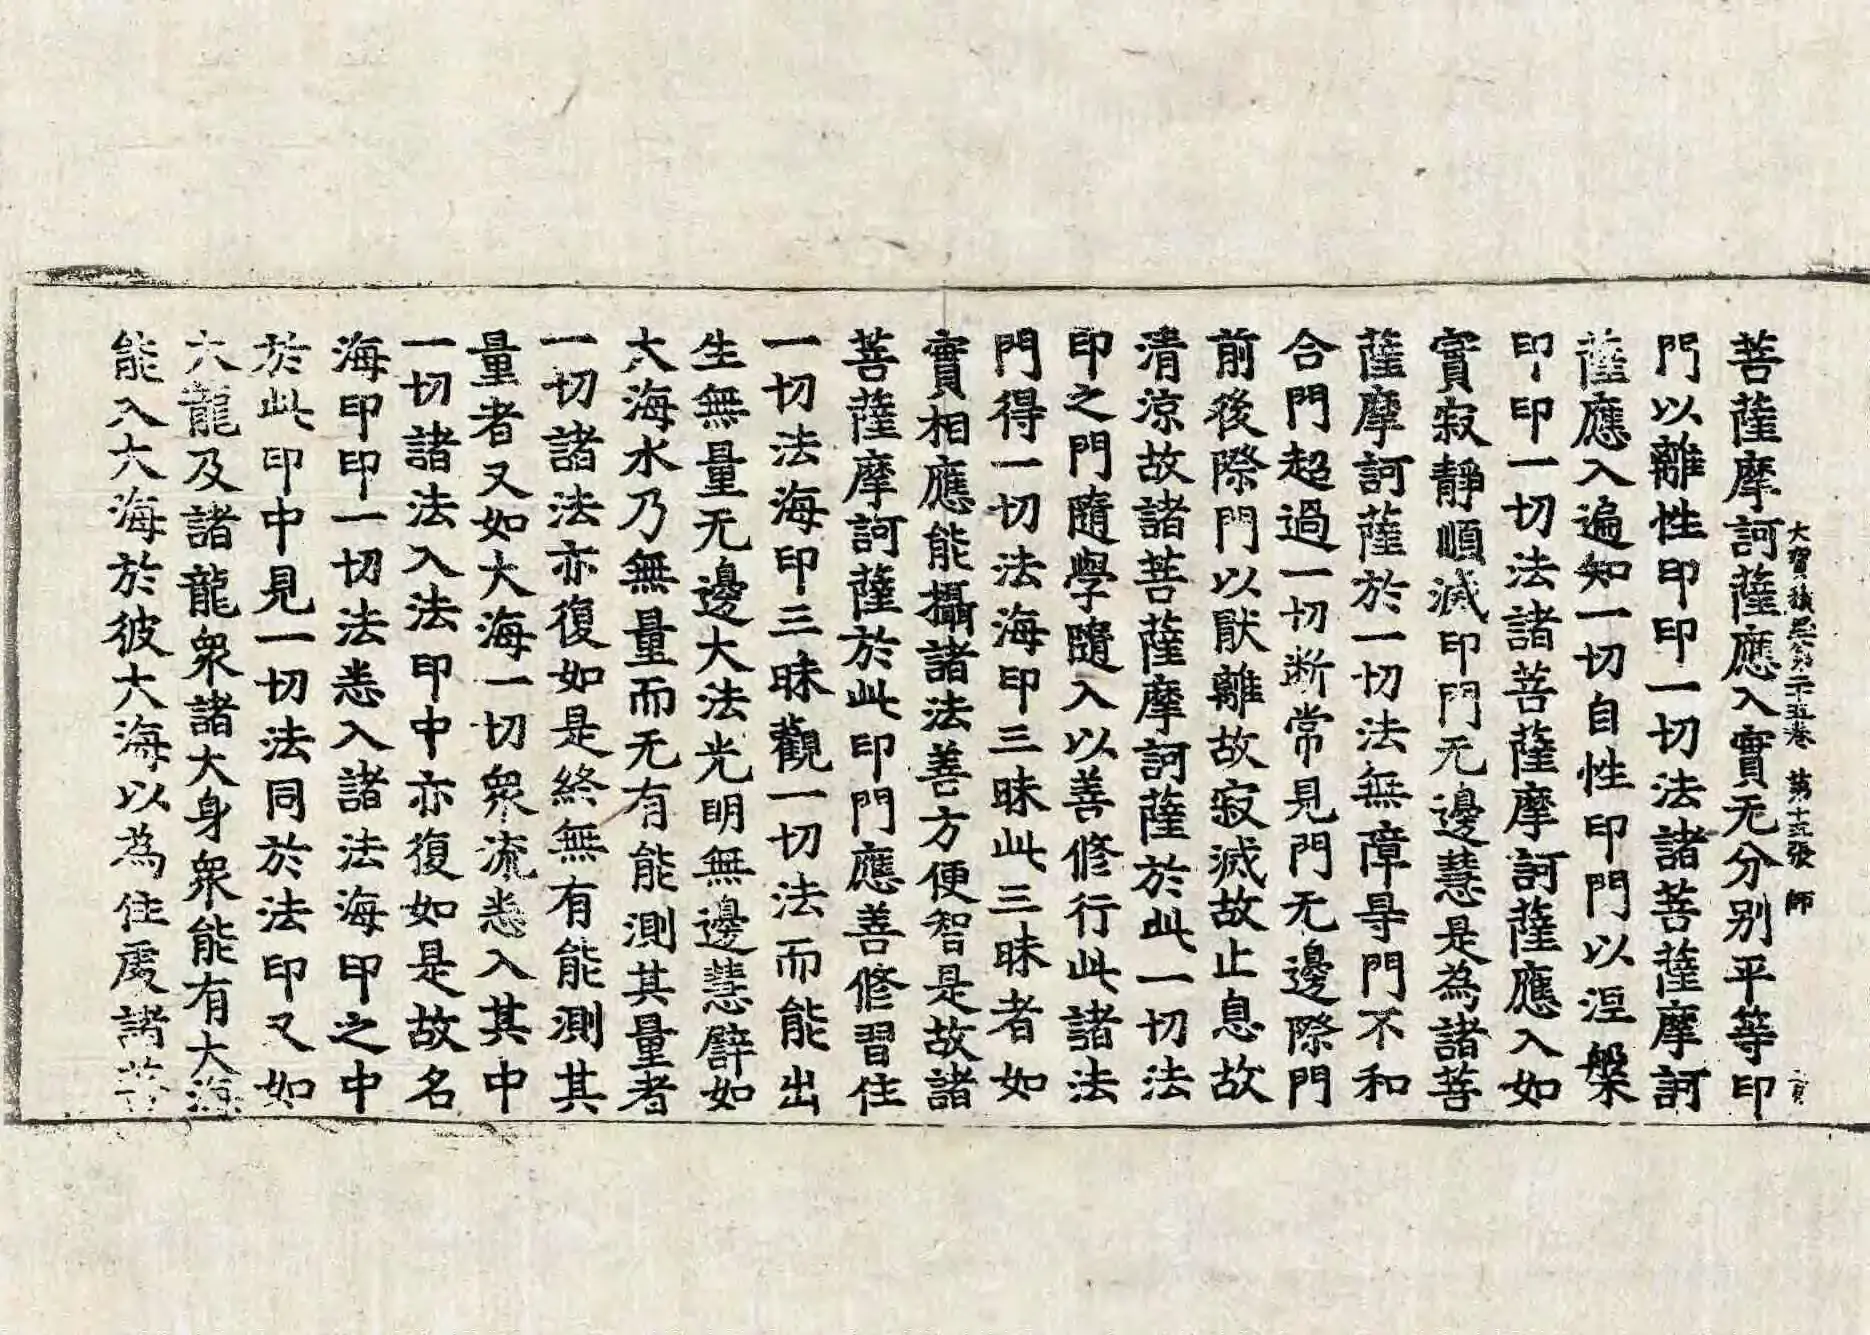 大寶積經第二十五卷　第十五張　師
菩薩摩訶薩應入實无分別平等印
門以離性印印一切法諸菩薩摩訶
薩應入遍知一切自性印門以涅槃
印印一切法諸菩薩摩訶薩應入如
實寂靜順滅印門无邊慧是為諸菩
薩摩訶薩於一切法無障㝵門不和
合門超過一切断常見門无邊際門
前後際門以厭離故寂滅故止息故
清涼故諸菩薩摩訶薩於此一切法
印之門隨學隨入以善修行此諸法
門得一切法海印三昧此三昧者如
實相應能攝諸法善方便智是故諸
菩薩摩訶薩於此印門應善修習住
一切法海印三昧觀一切法而能出
生無量无邊大法光明無邊慧譬如
大海水乃無量而无有能測其量者
一切諸法亦復如是終無有能測其
量者又如大海一切衆流悉入其中
一切諸法入法印中亦復如是故名
海印印一切法悉入諸法海印之中
於此印中見一切法同於法印又如
大龍及諸龍衆諸大身衆能有大海
能入大海於彼大海以為住處諸菩